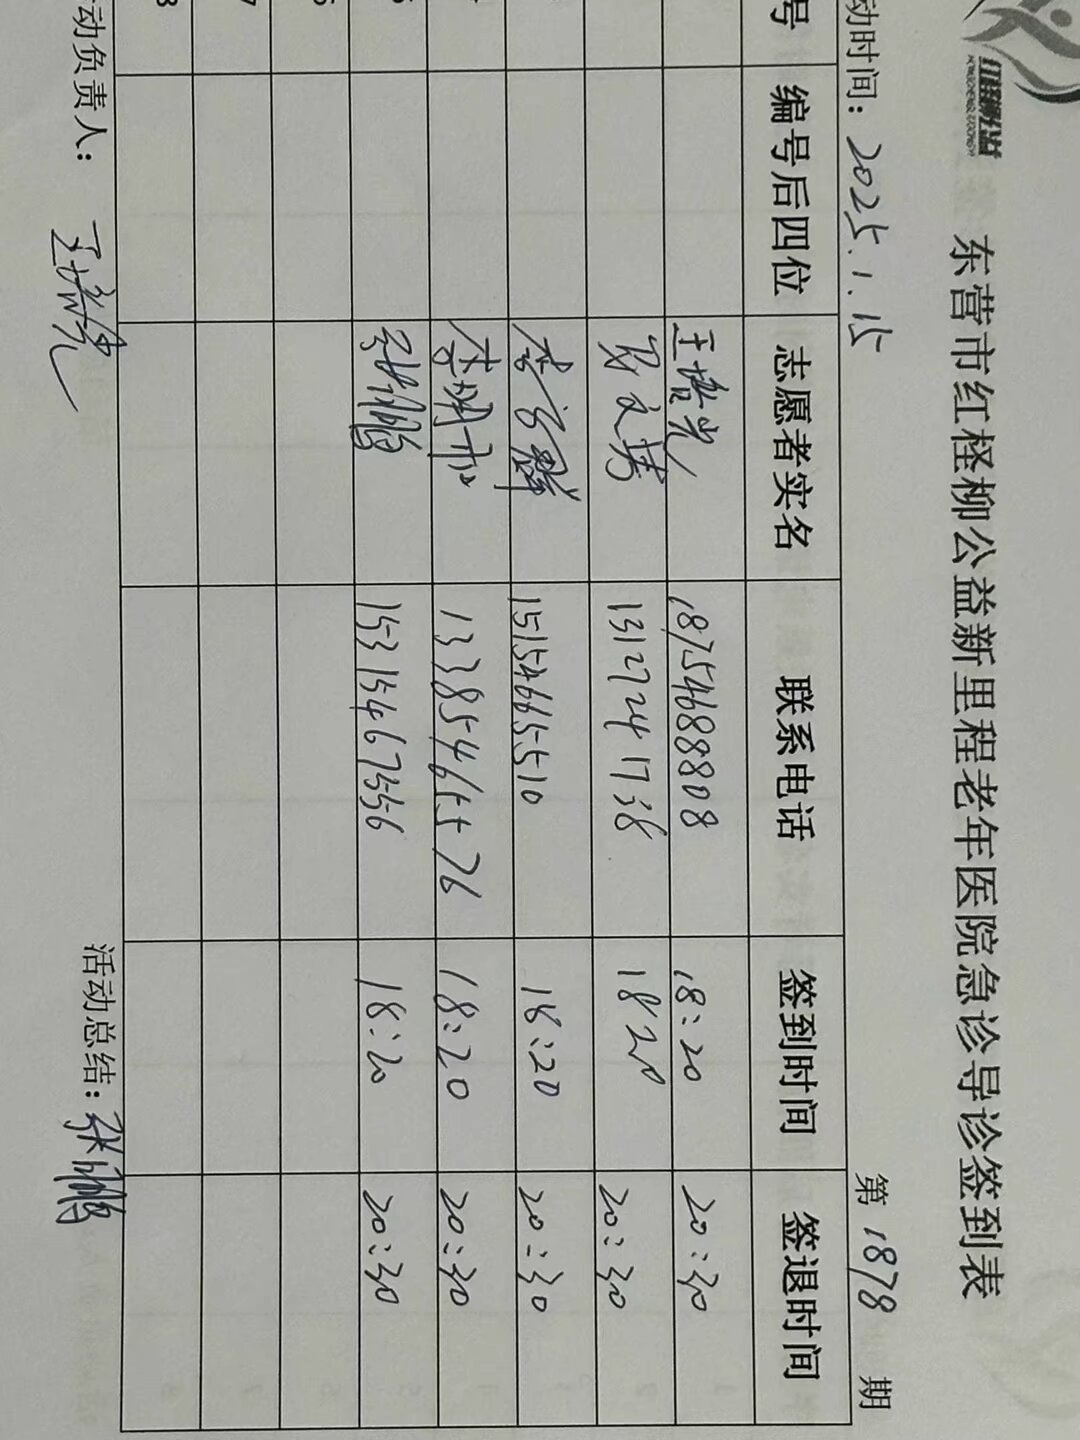 红柽柳公益
东营市红柽柳公益新里程老年医院急诊导诊签到表
动时间：2025.1.15 第 1878 期
号 编号后四位 志愿者实名 联系电话 签到时间 签退时间
王培光 18754688808 18:20 20:30
13127241738 18 20 20:30
15154665510 18:20 20:30
李明 13385465576 18:20 20:30
5 张鹏 15315467356 18:20 20:30
6
7
8
动负责人：王培光 活动总结：张鹏